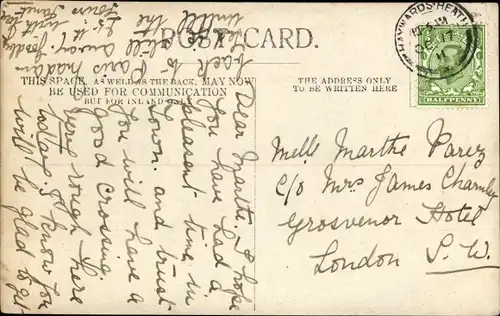 POST CARD.
THIS SPACE, AS WELL AS THE BACK, MAY NOW
BE USED FOR COMMUNICATION
BUT FOR INLAND ONLY.
THE ADDRESS ONLY
TO BE WRITTEN HERE
HAYWARDS HEATH
OC 17
11
HALFPENNY
Dear Marthe, I hope
you have had a
pleasant time in
town. and trust
you will have a
good crossing.
very rough here
today. I know you
will be glad to get
back to Paris
until the
Yours
Janet
Melle Marthe Parez
c/o Mrs James Charnley
Grosvenor Hotel
London S.W.